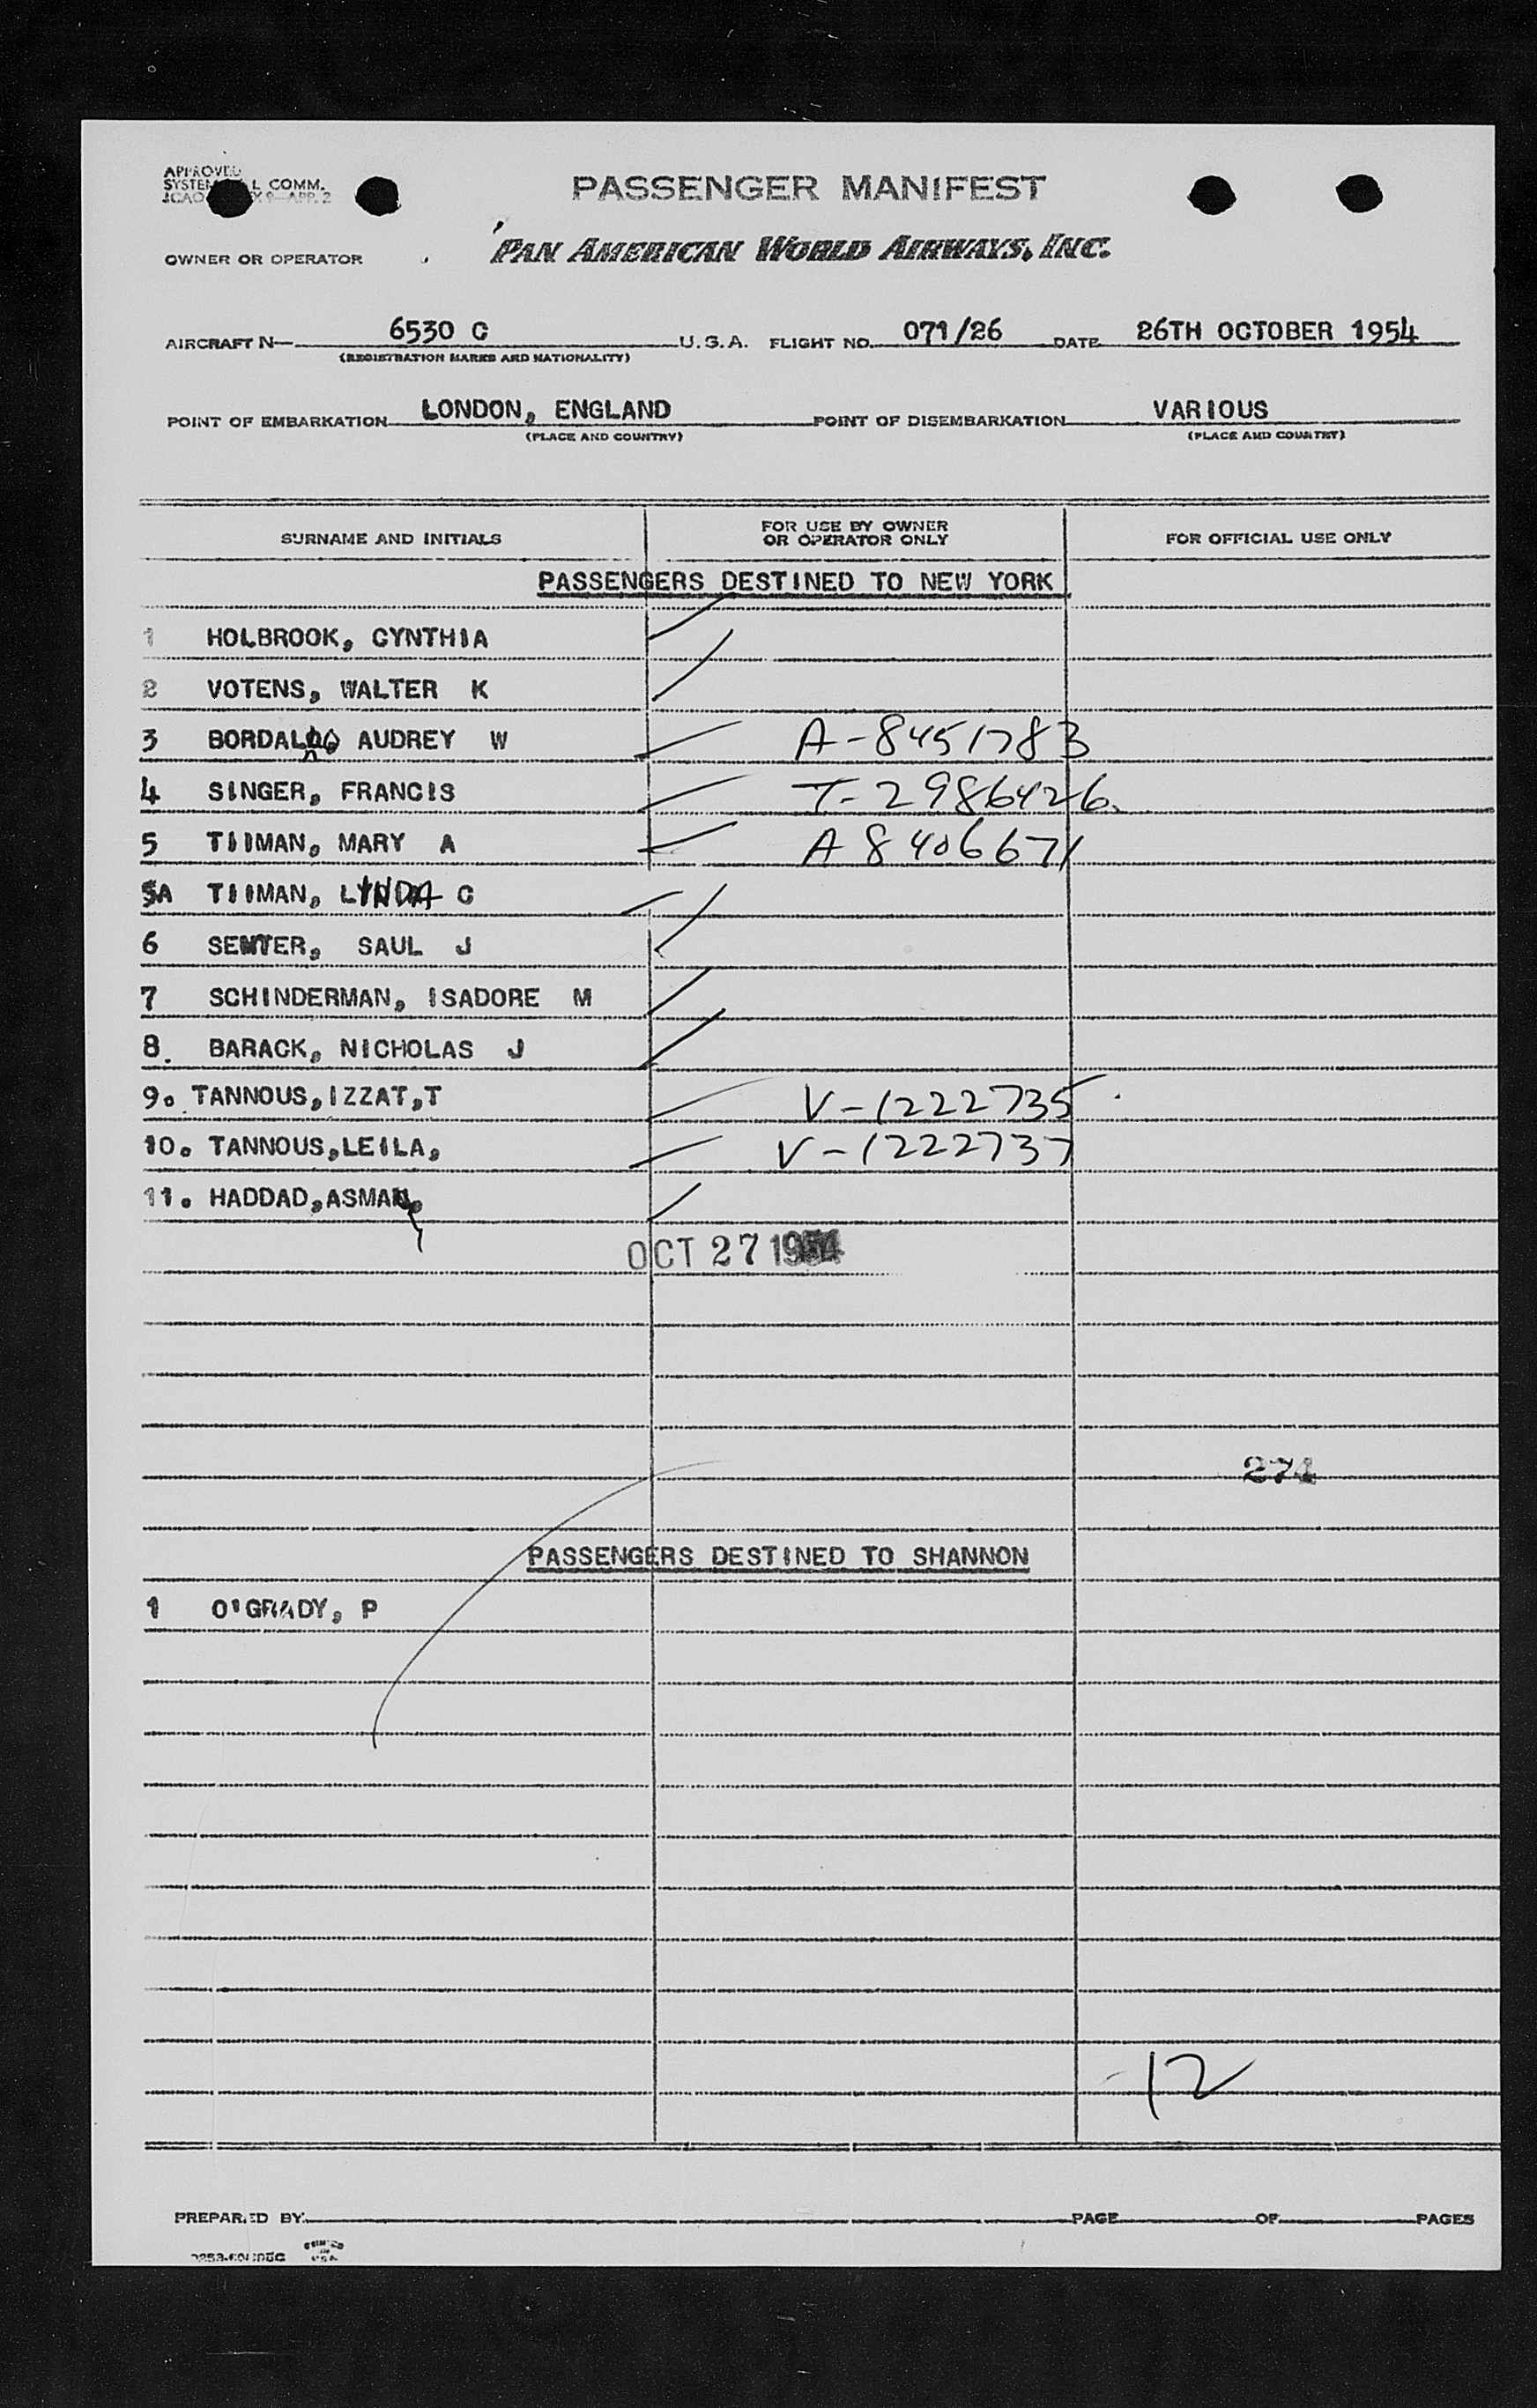 APPROVED
SYSTEM L COMM.
ICAO 9—APP. 2
PASSENGER MANIFEST
OWNER OR OPERATOR PAN AMERICAN WORLD AIRWAYS, INC.
AIRCRAFT N— 6530 C U.S.A. FLIGHT NO. 071/26 DATE 26TH OCTOBER 1954
(REGISTRATION MARKS AND NATIONALITY)
POINT OF EMBARKATION LONDON, ENGLAND POINT OF DISEMBARKATION VARIOUS
(PLACE AND COUNTRY) (PLACE AND COUNTRY)
SURNAME AND INITIALS FOR USE BY OWNER OR OPERATOR ONLY FOR OFFICIAL USE ONLY
PASSENGERS DESTINED TO NEW YORK
1 HOLBROOK, CYNTHIA
2 VOTENS, WALTER K
3 AUDREY W A-8451783
4 SINGER, FRANCIS T-2986426
5 TIIMAN, MARY A A 8406671
5A TIIMAN, LYNDA C
6 SEMTER, SAUL J
7 SCHINDERMAN, ISADORE M
8. BARACK, NICHOLAS J
9. TANNOUS,IZZAT,T V-1222735
10. TANNOUS,LEILA, V-1222737
11. HADDAD,ASMA
OCT 27 1954
274
PASSENGERS DESTINED TO SHANNON
1 O'GRADY, P
12
PREPARED BY PAGE OF PAGES
PRINTED IN U.S.A.